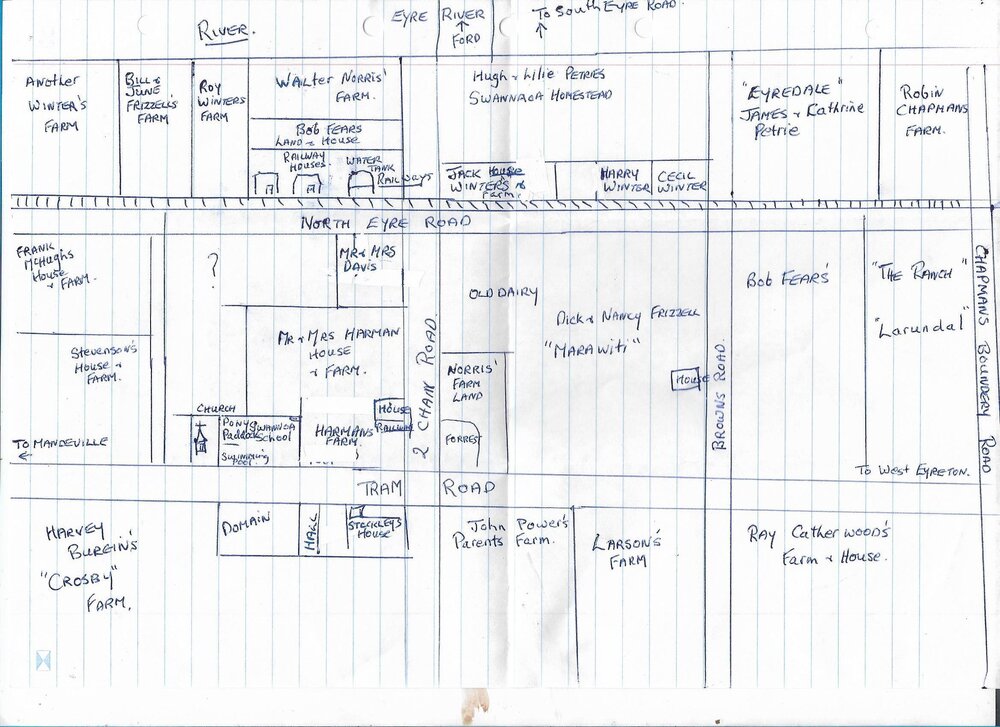 RIVER.
EYRE RIVER
↑
FORD
To South Eyre Road.
↑
Another
WINTER'S
FARM
Bill &
JUNE
FRIZZELL'S
FARM
ROY
WINTERS
FARM
WALTER NORRIS'
FARM.
BOB FEARS
LAND & HOUSE
RAILWAY
HOUSES.
WATER
TANK
RAILWAYS
Hugh & Lilie PETRIES
SWANNAOA HOMESTEAD
JACK House
WINTER'S &
Farm.
HARRY
WINTER
CECIL
WINTER
"EYREDALE"
JAMES & Kathrine
Petrie
ROBIN
CHAPMANS
FARM.
NORTH EYRE ROAD
FRANK
McHughs
House
& FARM.
?
MR & MRS
DAVIS
OLD DAIRY
Dick & NANCY FRIZZELL
"MARAWITI"
House
BOB FEAR'S
"THE RANCH"
"Larundal"
CHAPMANS BOUNDERY ROAD
Stevenson's
House &
FARM.
MR & MRS HARMAN
HOUSE
& FARM.
2 CHAIN ROAD.
NORRIS'
FARM
LAND
FORREST
BROWNS ROAD.
CHURCH
PONY
Paddock
SWIMMING
POOL
SWANNOA
School
HARMANS
FARM.
HOUSE
RAILWAY
TO MANDEVILLE
←
To West Eyreton.
TRAM ROAD
HARVEY
BURGIN'S
"CROSBY"
FARM.
DOMAIN
HALL
STECKLEY'S
HOUSE
John Power's
Parents Farm.
LARSON'S
FARM
RAY Catherwood's
Farm & House.